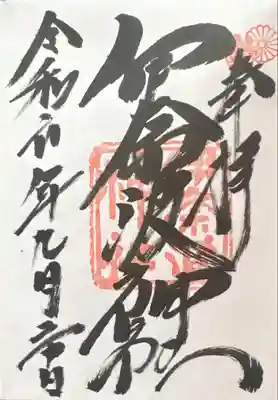 奉拝
伊奈波神社
令和元年九月二十日